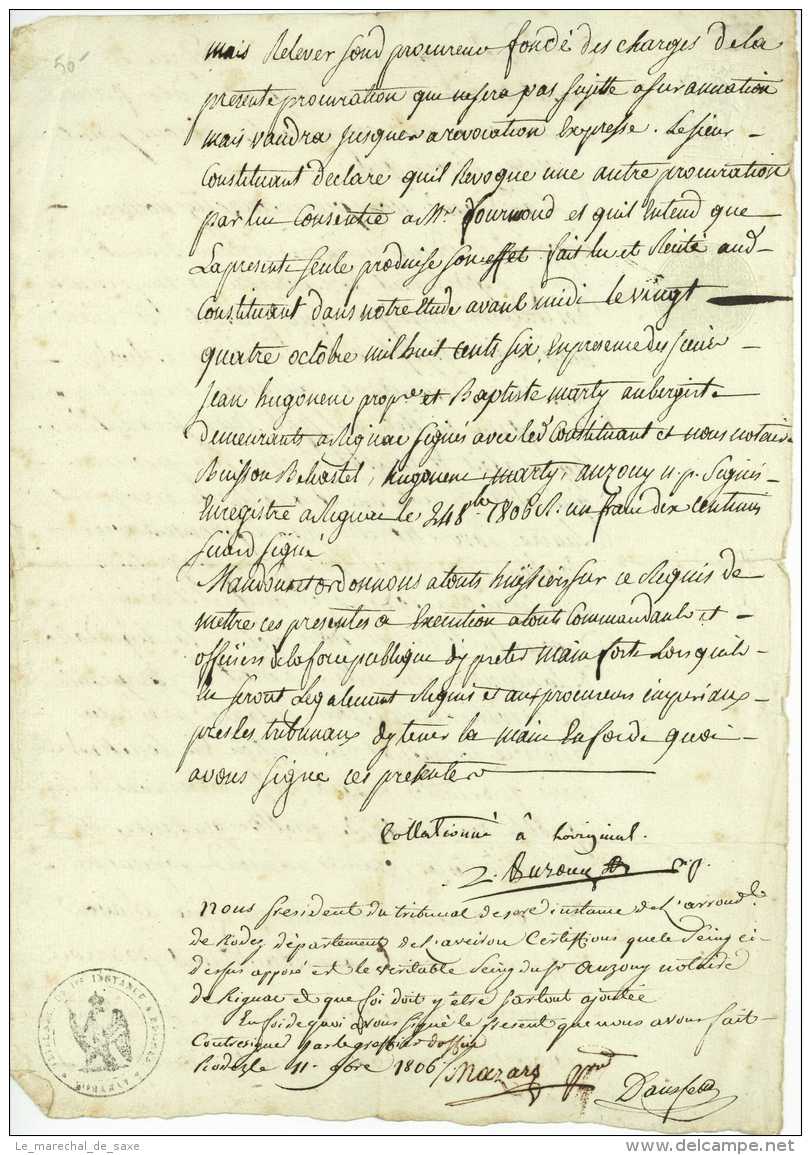 50
mais Relever sond procureur fondé des charges de la
presente procuration que nesera pas sujette a surannation
mais vaudra jusques a revocation Expresse. Lesieur
Constituant declare quil Revoque une autre procuration
par lui Consentie a Mr. fournond et quil Entend que
La presente seule produise son effet. fait lu et Récité aud
Constituant dans notre Etude avant midi le vingt
quatre octobre mil huit cents six En presence des sieurs
Jean hugonenc propre. et Baptiste marty aubergiste
demeurants a Rignac signés avec led Constituant et nous notaire
hugonenc, marty, auzouy n. p. Signés
Enregistré a Rignac le 24 8bre 1806 R. un franc dix centimes
signé
Mandons et ordonnons a touts huissiers sur ce Requis de
mettre ces presentes a Execution a touts Commandants et
officiers de la force publique dy preter main forte Lors quils
En seront Legalement Requis et aux procureurs imperiaux
pres les tribunaux dy tenir la main En foi de quoi
avons signé ces presentes
Collationné à Loriginal.
Auzouy
Nous president du tribunal de 1re instance de L'arrondt.
de Rodez département de L'aveiron Certiffions que le Seing ci
dessus apposé est le veritable Seing du Sr auzouy notaire
de Rignac et que foi doit y être partout ajoutée
En foi de quoi avons signé le present que nous avons fait
Contresigné par le greffier doffice
Rodez le 11. 9bre 1806
Mazars
Le_marechal_de_saxe
www.delcampe.net